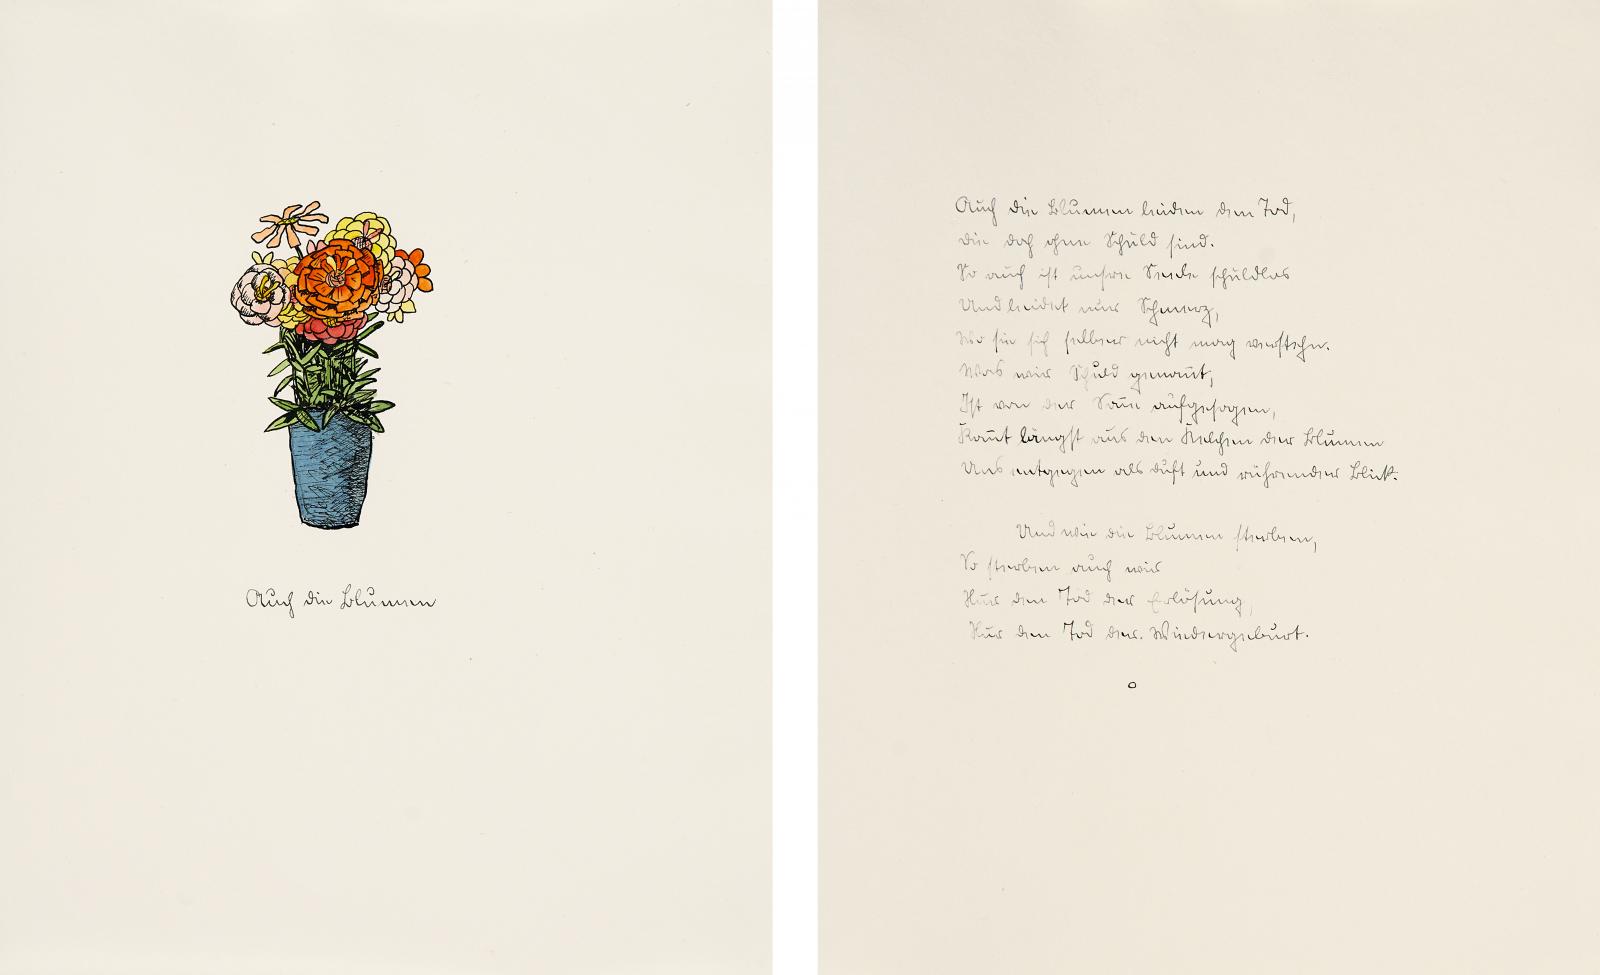 Auch die Blumen
Auch die Blumen leiden den Tod,
die doch ohne Schuld sind.
So auch ist unsre Seele schuldlos
Und leidet nur Schmerz,
Wo sie sich selber nicht mag verstehn.
Was wir Schuld genan̄t,
Ist von der Son̄e aufgesogen,
Kom̄t längst aus den Kelchen der Blumen
Uns entgegen als Duft und rührender Blick.
Und wie die Blumen sterben,
So sterben auch wir
Nur den Tod der Erlösung,
Nur den Tod der Wiedergeburt.